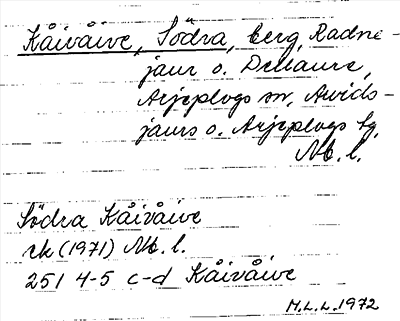 Kåivåive, Södra, berg, Radne-
jaur o. Dellaure,
Arjeplogs sn, Arvids-
jaurs o. Arjeplogs tg,
Nb. l.
Södra Kåivåive
rk (1971) Nb. l.
251 4-5 c-d Kåivåive
M.L.L. 1972